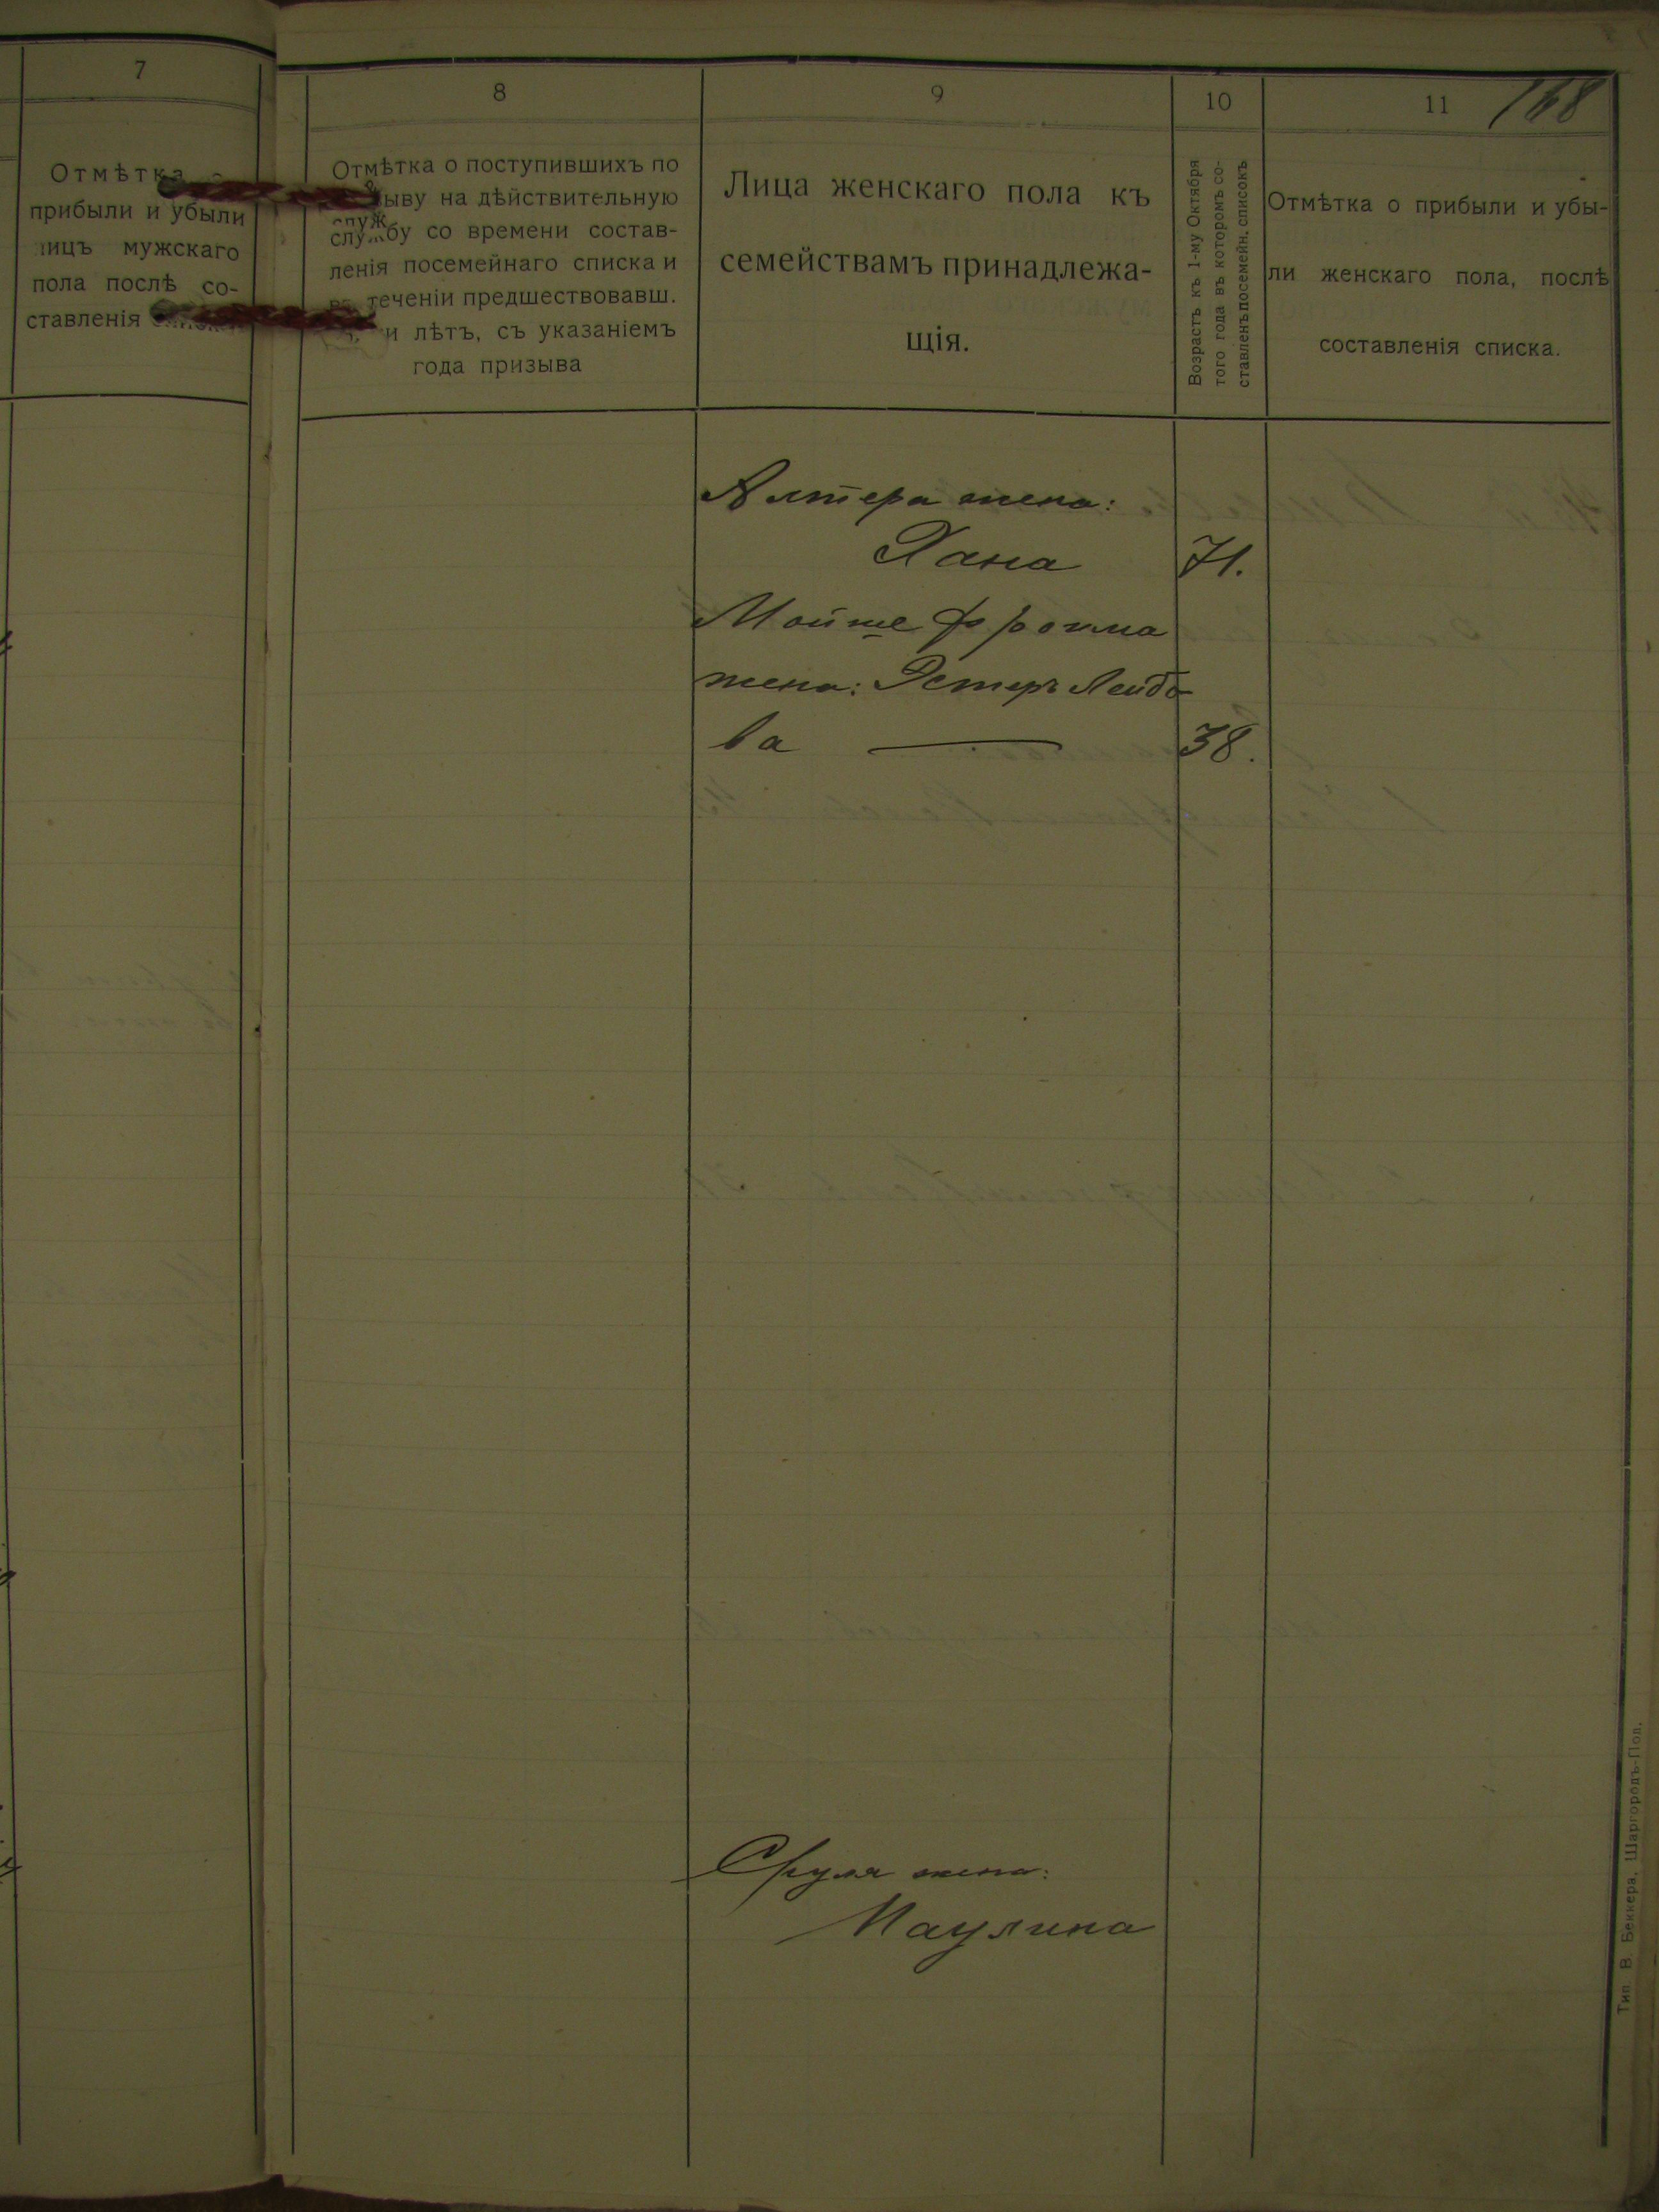 7
Отмѣтка о
прибыли и убыли
лицъ мужскаго
пола послѣ со-
ставленія
8
Отмѣтка о поступившихъ по
призыву на дѣйствительную
службу со времени состав-
ленія посемейнаго списка и
въ теченіи предшествовавш.
и лѣтъ, съ указаніемъ
года призыва
9
Лица женскаго пола къ
семействамъ принадлежа-
щія.
10
Возрастъ къ 1-му Октября
того года въ которомъ со-
ставленъ посемейн. списокъ
11
168
Отмѣтка о прибыли и убы-
ли женскаго пола, послѣ
составленія списка.
Алтера жена:
Хана 71.
Мойше Фроима
жена: Эстеръ Лейбо-
ва — 38.
Сруля жена:
Паулина
Тип. В. Беккера, Шаргородъ-Под.